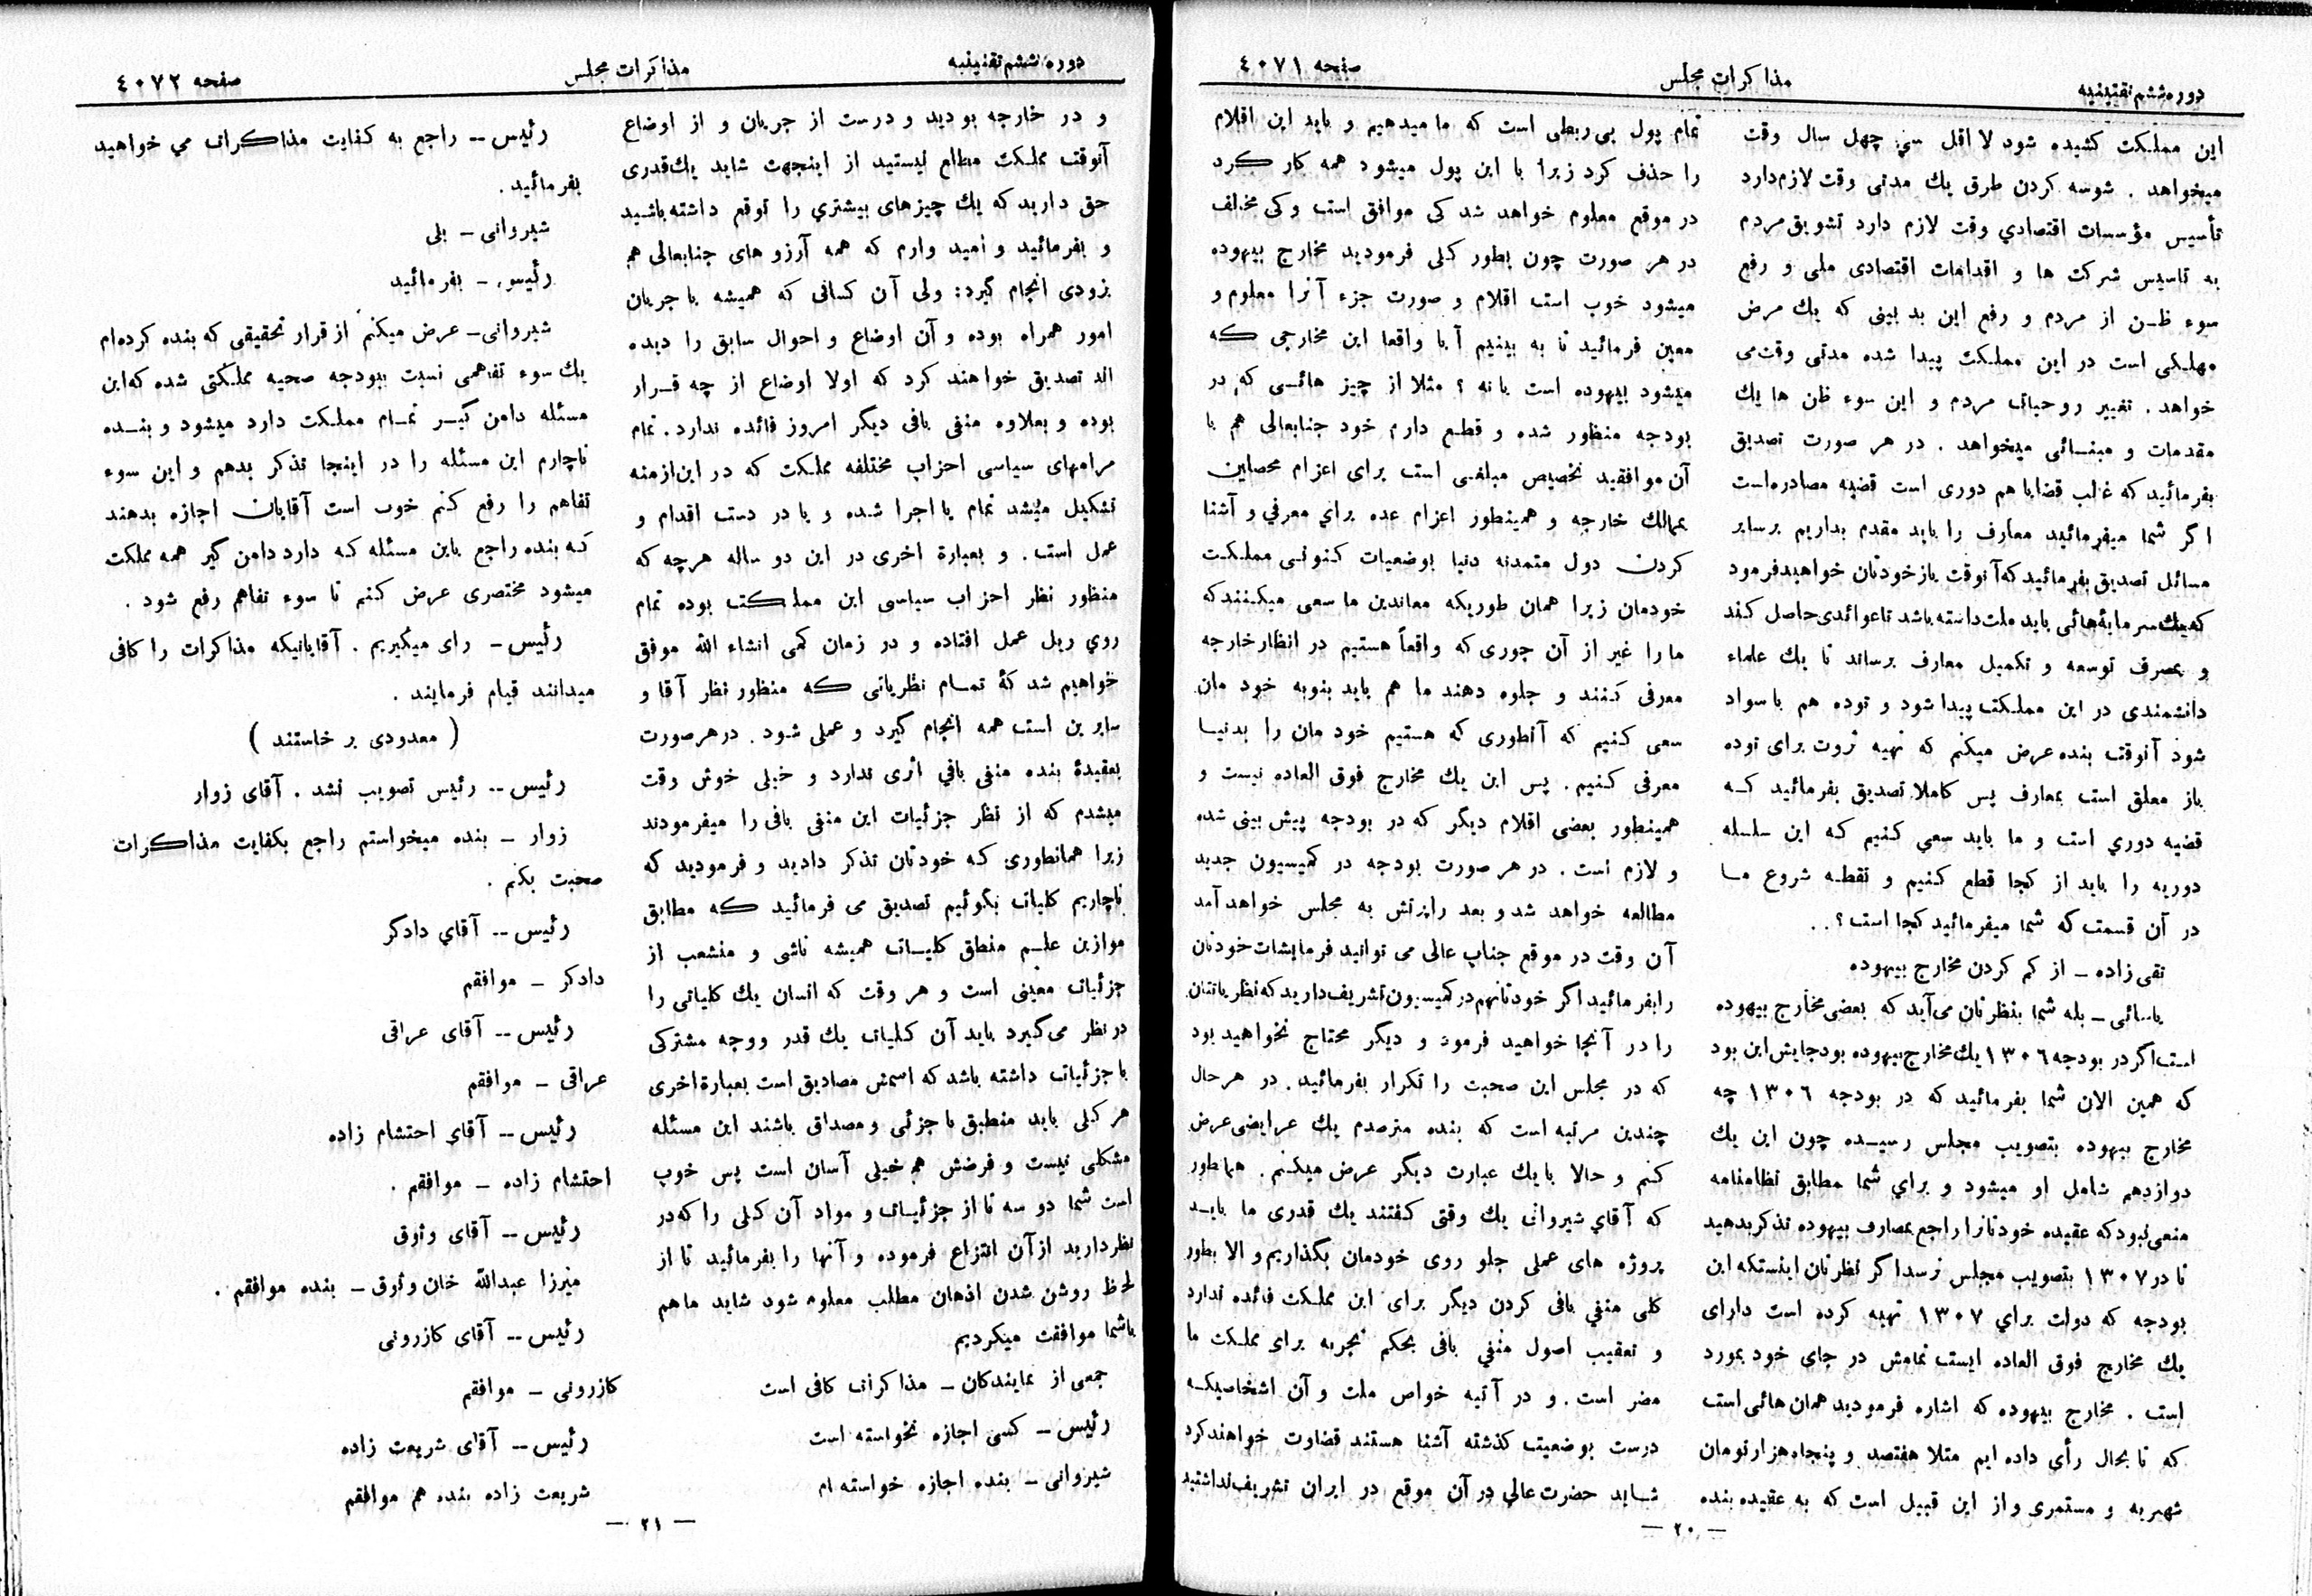 دوره ششم تقنینیه
مذاکرات مجلس
صفحه ٤٠٧١
این مملکت کشیده شود لا اقل سی چهل سال وقت
میخواهد . شوسه کردن طرق یك مدتی وقت لازم دارد
تأسیس مؤسسات اقتصادي وقت لازم دارد تشویق مردم
به تاسیس شرکت ها و اقدامات اقتصادی ملی و رفع
سوء ظن از مردم و رفع این بد بینی که یك مرض
مهلکی است در این مملکت پیدا شده مدتی وقت می
خواهد . تغییر روحیات مردم و این سوء ظن ها یك
مقدمات و مبنائی میخواهد . در هر صورت تصدیق
بفرمائید که غالب قضایا هم دوری است قضیه مصادره است
اگر شما میفرمائید معارف را باید مقدم بداریم برسایر
مسائل تصدیق بفرمائید که آنوقت باز خودتان خواهید فرمود
که یك سرمایه هائی باید ملت داشته باشد تا عوائدی حاصل کند
و بمصرف توسعه و تکمیل معارف برساند تا یك علماء
دانشمندی در این مملکت پیدا شود و توده هم با سواد
شود آنوقت بنده عرض میکنم که تهیه ثروت برای توده
باز معلق است بمعارف پس کاملا تصدیق بفرمائید که
قضیه دوري است و ما باید سعي کنیم که این سلسله
دوریه را باید از کجا قطع کنیم و نقطه شروع ما
در آن قسمت که شما میفرمائید کجا است ؟ . .
تقی زاده ـ از کم کردن مخارج بیهوده
یاسائی ـ بله شما بنظرتان می آید که بعضی مخارج بیهوده
است اگر در بودجه ١٣٠٦ یك مخارج بیهوده بود جایش این بود
که همین الان شما بفرمائید که در بودجه ١٣٠٦ چه
مخارج بیهوده بتصویب مجلس رسیده چون این یك
دوازدهم شامل او میشود و براي شما مطابق نظامنامه
منعی نبود که عقیده خودتانرا راجع بمصارف بیهوده تذکر بدهید
تا در ١٣٠٧ بتصویب مجلس نرسد اگر نظرتان اینستکه این
بودجه که دولت براي ١٣٠٧ تهیه کرده است دارای
یك مخارج فوق العاده ایست تمامش در جای خود بمورد
است . مخارج بیهوده که اشاره فرمودید همان هائی است
که تا بحال رأی داده ایم مثلا هفتصد و پنجاه هزار تومان
شهریه و مستمری و از این قبیل است که به عقیده بنده
تمام پول بی ربطی است که ما میدهیم و باید این اقلام
را حذف کرد زیرا با این پول میشود همه کار کرد
در موقع معلوم خواهد شد کی موافق است و کی مخالف
در هر صورت چون بطور کلی فرمودید مخارج بیهوده
میشود خوب است اقلام و صورت جزء آنرا معلوم و
معین فرمائید تا به بینیم آیا واقعا این مخارجی که
میشود بیهوده است یا نه ؟ مثلا از چیز هائی که در
بودجه منظور شده و قطع دارم خود جنابعالی هم با
آن موافقید تخصیص مبلغی است برای اعزام محصلین
بممالك خارجه و همینطور اعزام عده براي معرفي و آشنا
کردن دول متمدنه دنیا بوضعیات کنونی مملکت
خودمان زیرا همان طوریکه معاندین ما سعی میکنند که
ما را غیر از آن جوری که واقعاً هستیم در انظار خارجه
معرفی کنند و جلوه دهند ما هم باید بنوبه خود مان
سعی کنیم که آنطوری که هستیم خود مان را بدنیا
معرفی کنیم . پس این یك مخارج فوق العاده نیست و
همینطور بعضی اقلام دیگر که در بودجه پیش بینی شده
و لازم است . در هر صورت بودجه در کمیسیون جدید
مطالعه خواهد شد و بعد راپرتش به مجلس خواهد آمد
آن وقت در موقع جناب عالی می توانید فرمایشات خودتان
را بفرمائید اگر خودتانهم در کمیسیون تشریف دارید که نظریاتتان
را در آنجا خواهید فرمود و دیگر محتاج نخواهید بود
که در مجلس این صحبت را تکرار بفرمائید . در هر حال
چندین مرتبه است که بنده مترصدم یك عرایضی عرض
کنم و حالا با یك عبارت دیگر عرض میکنم . همانطور
که آقاي شیروانی یك وقتی گفتند یك قدری ما باید
پروژه های عملی جلو روی خودمان بگذاریم و الا بطور
کلی منفي بافی کردن دیگر برای این مملکت فائده ندارد
و تعقیب اصول منفي بافی بحکم تجربه برای مملکت ما
مضر است . و در آتیه خواص ملت و آن اشخاصیکه
درست بوضعیت گذشته آشنا هستند قضاوت خواهند کرد
شاید حضرت عالي در آن موقع در ایران تشریف نداشتید
— ٢٠ —
دوره ششم تقنینیه
مذاکرات مجلس
صفحه ٤٠٧٢
و در خارجه بودید و درست از جریان و از اوضاع
آنوقت مملکت مطلع نیستید از اینجهت شاید یك قدری
حق دارید که یك چیزهای بیشتري را توقع داشته باشید
و بفرمائید و امید وارم که همه آرزو های جنابعالی هم
بزودی انجام گیرد : ولی آن کسانی که همیشه با جریان
امور همراه بوده و آن اوضاع و احوال سابق را دیده
اند تصدیق خواهند کرد که اولا اوضاع از چه قرار
بوده و بعلاوه منفی بافی دیگر امروز فائده ندارد . تمام
مرامهای سیاسی احزاب مختلفه مملکت که در این ازمنه
تشکیل میشد تمام یا اجرا شده و یا در دست اقدام و
عمل است . و بعبارة اخری در این دو ساله هرچه که
منظور نظر احزاب سیاسی این مملکت بوده تمام
روي ریل عمل افتاده و در زمان کمی انشاء الله موفق
خواهیم شد که تمام نظریاتی که منظور نظر آقا و
سایرین است همه انجام گیرد و عملی شود . در هر صورت
بعقیدۀ بنده منفی بافي اثری ندارد و خیلی خوش وقت
میشدم که از نظر جزئیات این منفی بافی را میفرمودند
زیرا همانطوری که خودتان تذکر دادید و فرمودید که
ناچاریم کلیات بگوئیم تصدیق می فرمائید که مطابق
موازین علم منطق کلیات همیشه ناشی و منشعب از
جزئیات معینی است و هر وقت که انسان یك کلیاتی را
در نظر می گیرد باید آن کلیات یك قدر و وجه مشترکی
با جزئیات داشته باشد که اسمش مصادیق است بعبارة اخری
هر کلی باید منطبق با جزئی و مصداقی باشند این مسئله
مشکلی نیست و فرضش هم خیلی آسان است پس خوب
است شما دو سه تا از جزئیات و مواد آن کلی را که در
نظر دارید از آن انتزاع فرموده و آنها را بفرمائید تا از
لحاظ روشن شدن اذهان مطلب معلوم شود شاید ما هم
با شما موافقت میکردیم
جمعی از نمایندکان ـ مذاکرات کافی است
رئیس ـ کسی اجازه نخواسته است
شیروانی ـ بنده اجازه خواسته ام
رئیس -- راجع به کفایت مذاکرات می خواهید
بفرمائید .
شیروانی ـ بلی
رئیس ـ بفرمائید
شیروانی ـ عرض میکنم از قرار تحقیقی که بنده کرده ام
یك سوء تفاهمی نسبت ببودجه صحیه مملکتی شده که این
مسئله دامن گیر تمام مملکت دارد میشود و بنده
ناچارم این مسئله را در اینجا تذکر بدهم و این سوء
تفاهم را رفع کنم خوب است آقایان اجازه بدهند
که بنده راجع باین مسئله که دارد دامن گیر همه مملکت
میشود مختصری عرض کنم تا سوء تفاهم رفع شود .
رئیس ـ رای میگیریم . آقایانیکه مذاکرات را کافی
میدانند قیام فرمایند .
( معدودی بر خاستند )
رئیس -- رئیس تصویب نشد . آقای زوار
زوار ـ بنده میخواستم راجع بکفایت مذاکرات
صحبت بکنم .
رئیس -- آقاي دادگر
دادگر ـ موافقم
رئیس -- آقای عراقی
عراقی ـ موافقم
رئیس -- آقاي احتشام زاده
احتشام زاده ـ موافقم .
رئیس -- آقای وثوق
میرزا عبدالله خان وثوق ـ بنده موافقم .
رئیس -- آقای کازرونی
کازرونی ـ موافقم
رئیس -- آقای شریعت زاده
شریعت زاده بنده هم موافقم
— ٢١ —